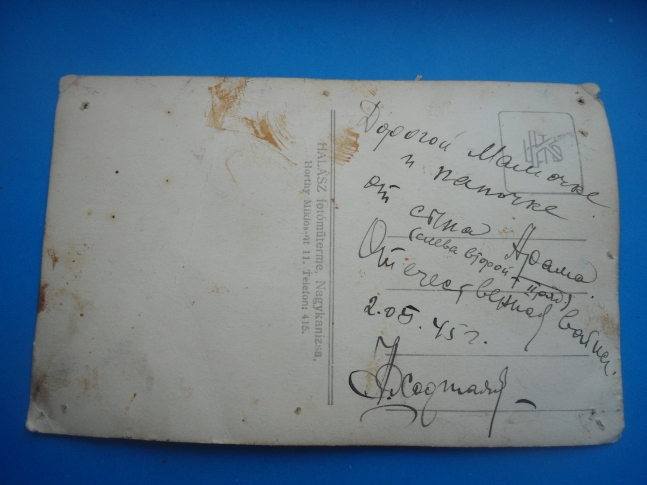 HALÁSZ fotóműterme, Nagykanizsa,
Horthy Miklós-ut 11. Telefon: 415.
Дорогой Мамочке
и папочке
от сына Адама.
(слева второй
Отечественная война.
2.05.45 г.